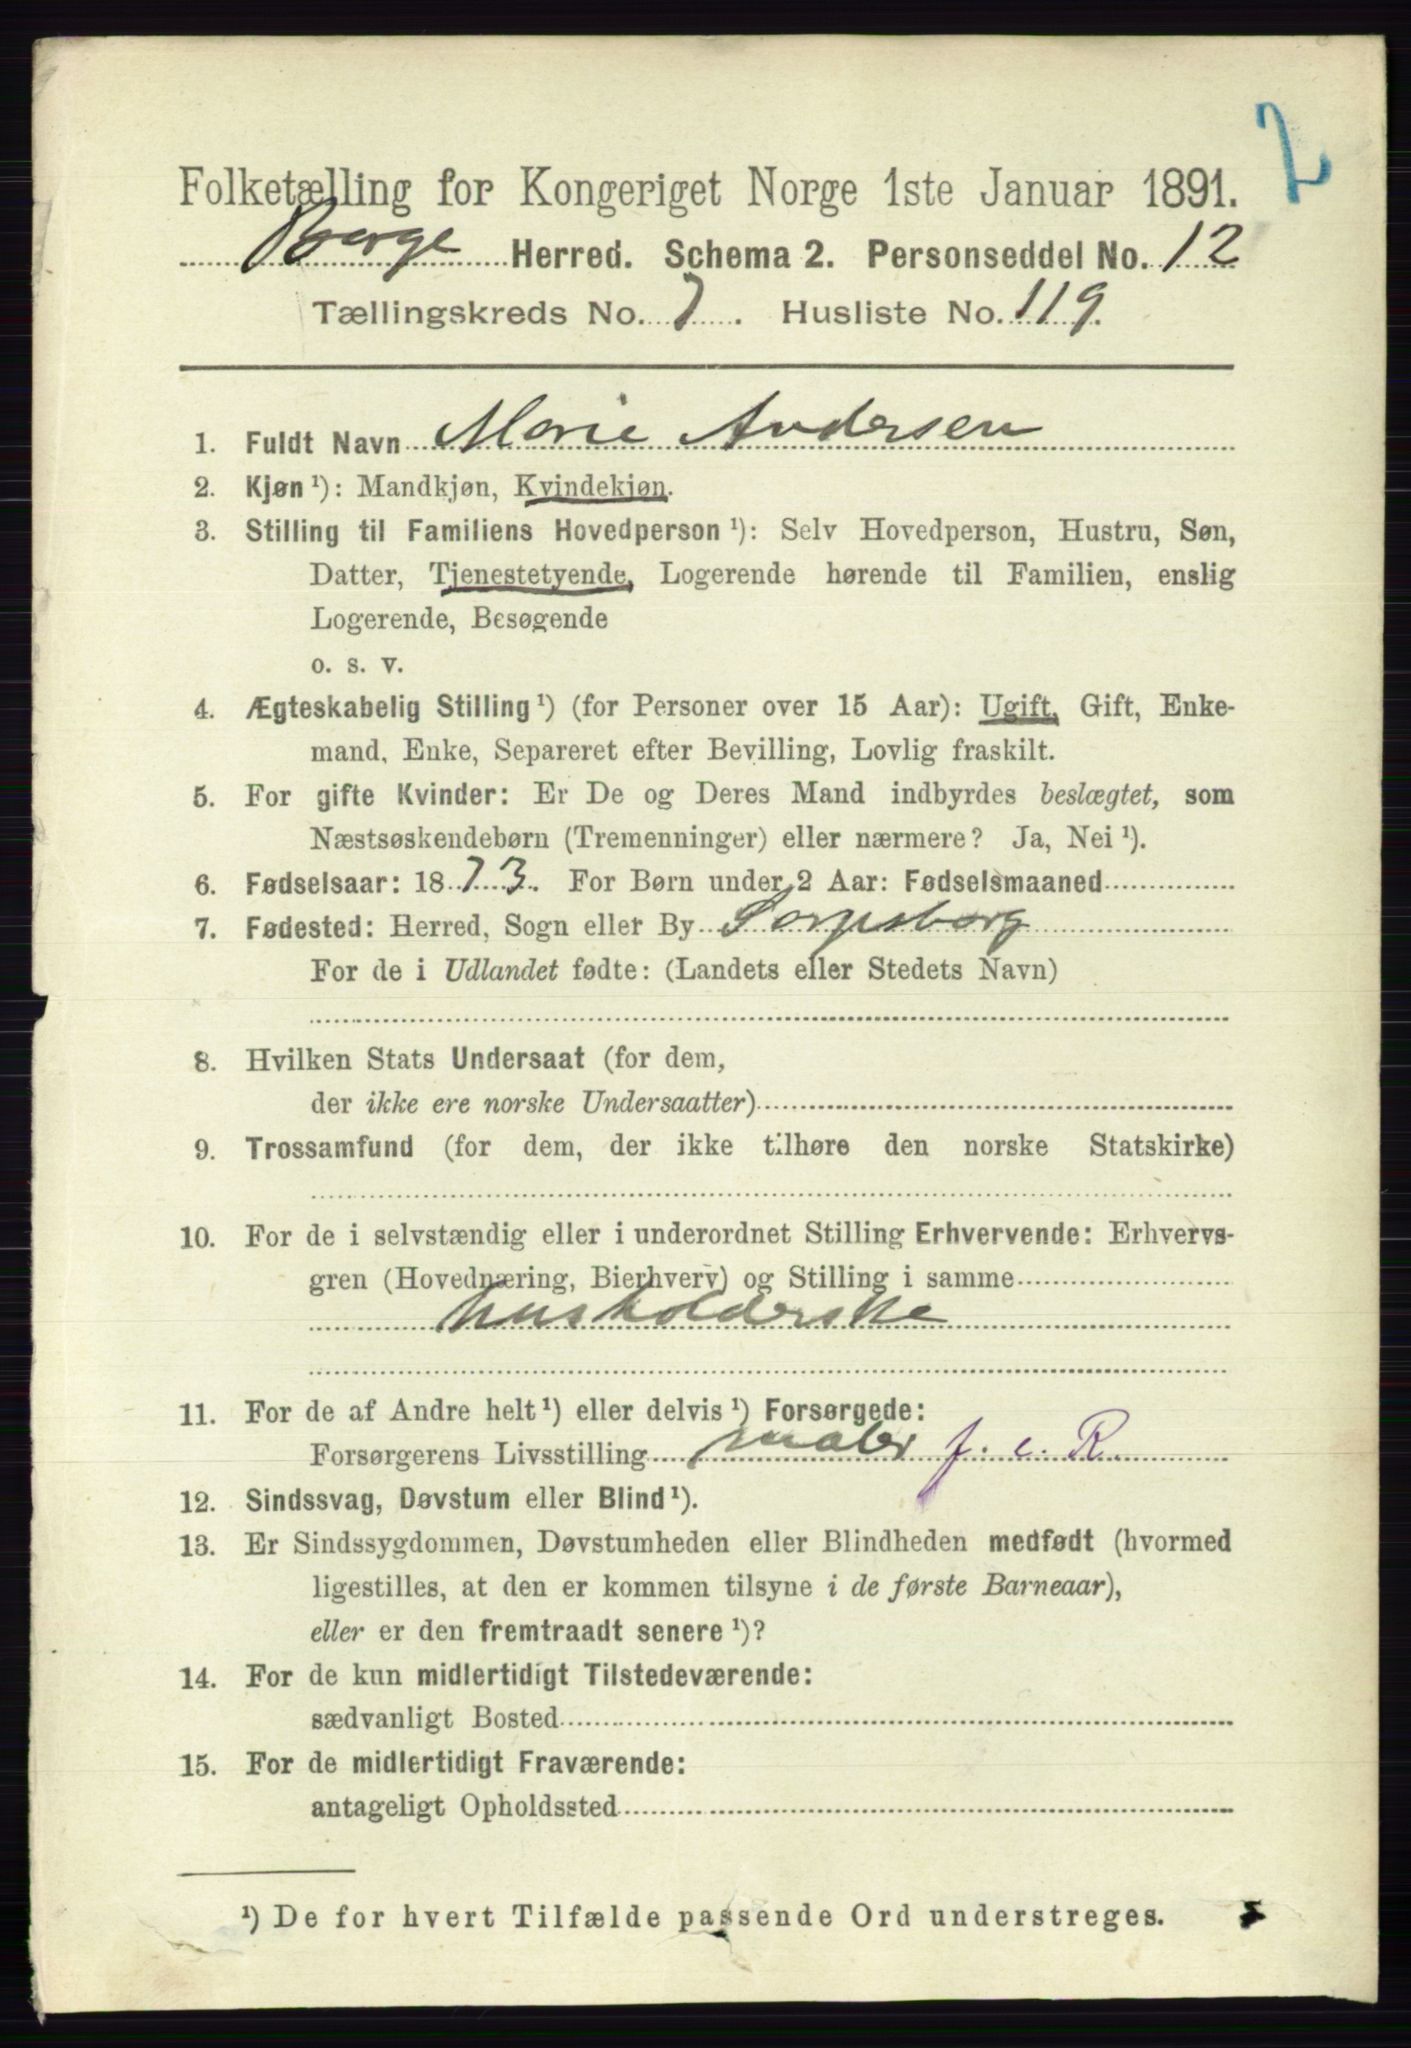 2
Folketælling for Kongeriget Norge 1ste Januar 1891.
Borge Herred. Schema 2. Personseddel No. 12
Tællingskreds No. 7. Husliste No. 119.
1. Fuldt Navn Marie Andersen
2. Kjøn ¹): Mandkjøn, Kvindekjøn.
3. Stilling til Familiens Hovedperson ¹): Selv Hovedperson, Hustru, Søn,
Datter, Tjenestetyende, Logerende hørende til Familien, enslig
Logerende, Besøgende
o. s. v.
4. Ægteskabelig Stilling ¹) (for Personer over 15 Aar): Ugift, Gift, Enke-
mand, Enke, Separeret efter Bevilling, Lovlig fraskilt.
5. For gifte Kvinder: Er De og Deres Mand indbyrdes beslægtet, som
Næstsøskendebørn (Tremenninger) eller nærmere? Ja, Nei ¹).
6. Fødselsaar: 1873. For Børn under 2 Aar: Fødselsmaaned
7. Fødested: Herred, Sogn eller By Sarpsborg
For de i Udlandet fødte: (Landets eller Stedets Navn)
8. Hvilken Stats Undersaat (for dem,
der ikke ere norske Undersaatter)
9. Trossamfund (for dem, der ikke tilhøre den norske Statskirke)
10. For de i selvstændig eller i underordnet Stilling Erhvervende: Erhvervs-
gren (Hovednæring, Bierhverv) og Stilling i samme
husholderske
11. For de af Andre helt ¹) eller delvis ¹) Forsørgede:
Forsørgerens Livsstilling maler f. c. R.
12. Sindssvag, Døvstum eller Blind ¹).
13. Er Sindssygdommen, Døvstumheden eller Blindheden medfødt (hvormed
ligestilles, at den er kommen tilsyne i de første Barneaar),
eller er den fremtraadt senere ¹)?
14. For de kun midlertidigt Tilstedeværende:
sædvanligt Bosted
15. For de midlertidigt Fraværende:
antageligt Opholdssted
¹) De for hvert Tilfælde passende Ord understreges.